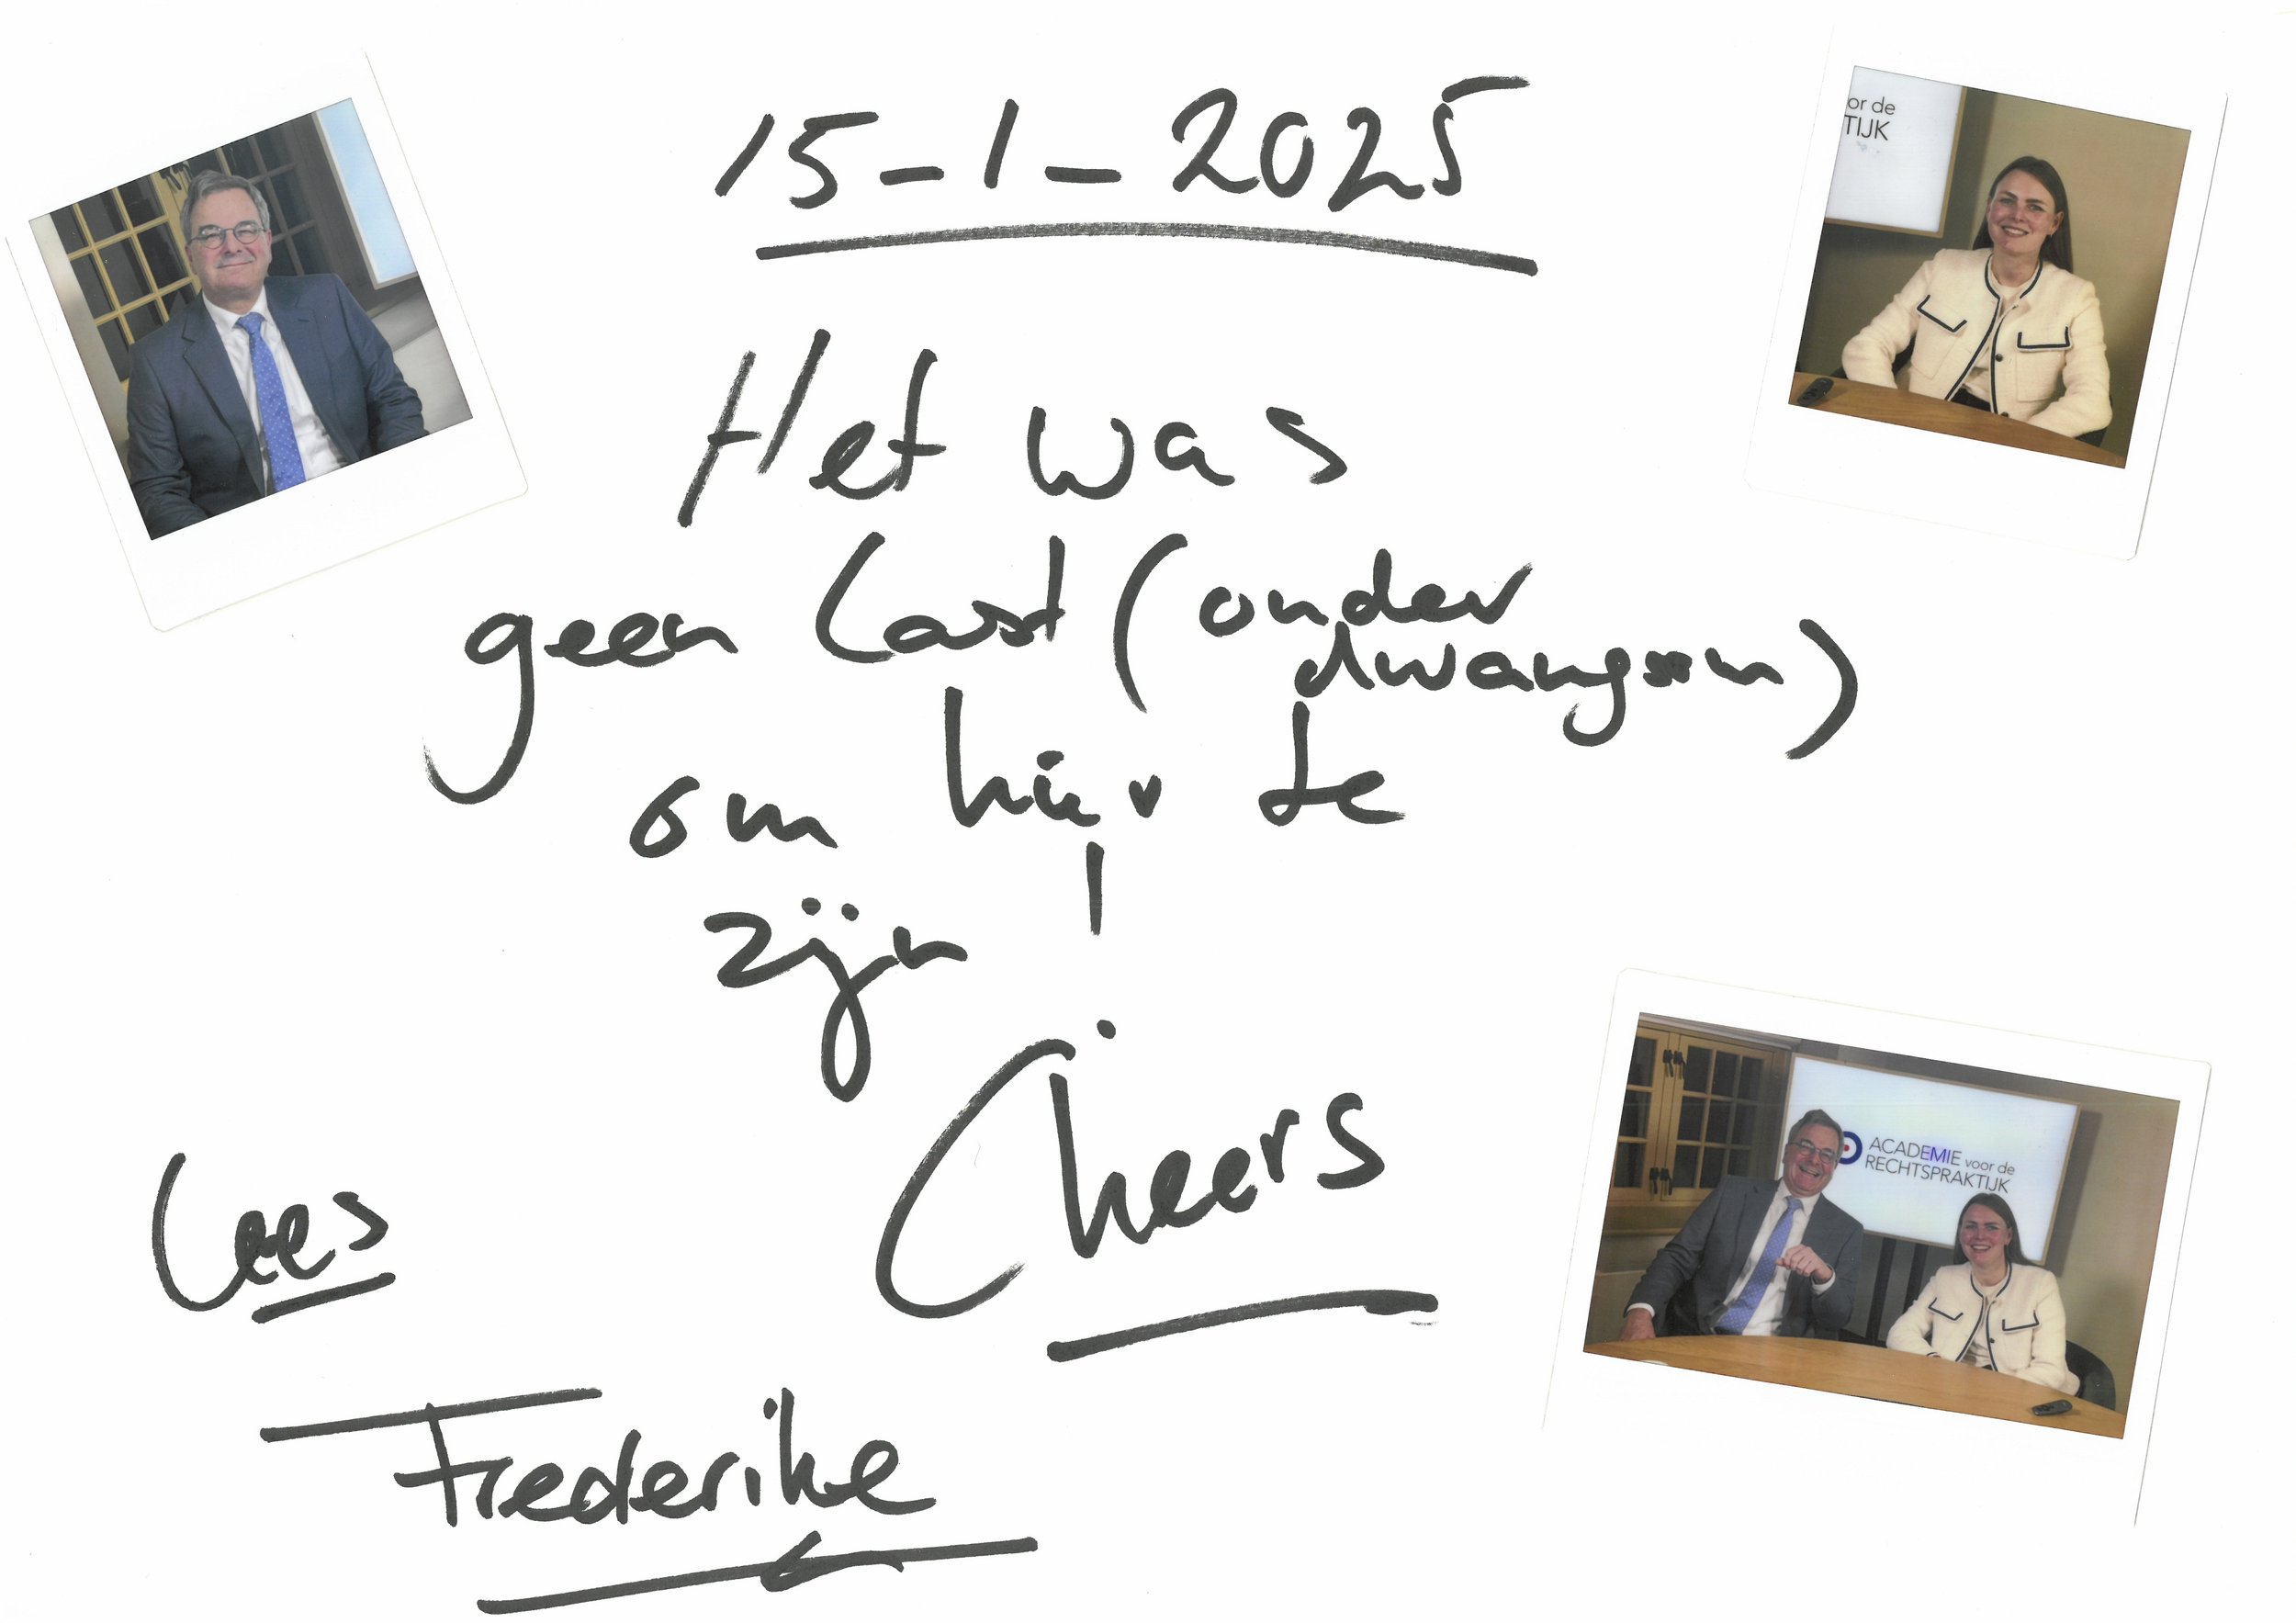 15-1-2025
Het was
geen last (onder
dwangsom)
om hier te
zijn!
Cheers
Cees
Frederike
or de
TIJK
ACADEMIE voor de
RECHTSPRAKTIJK